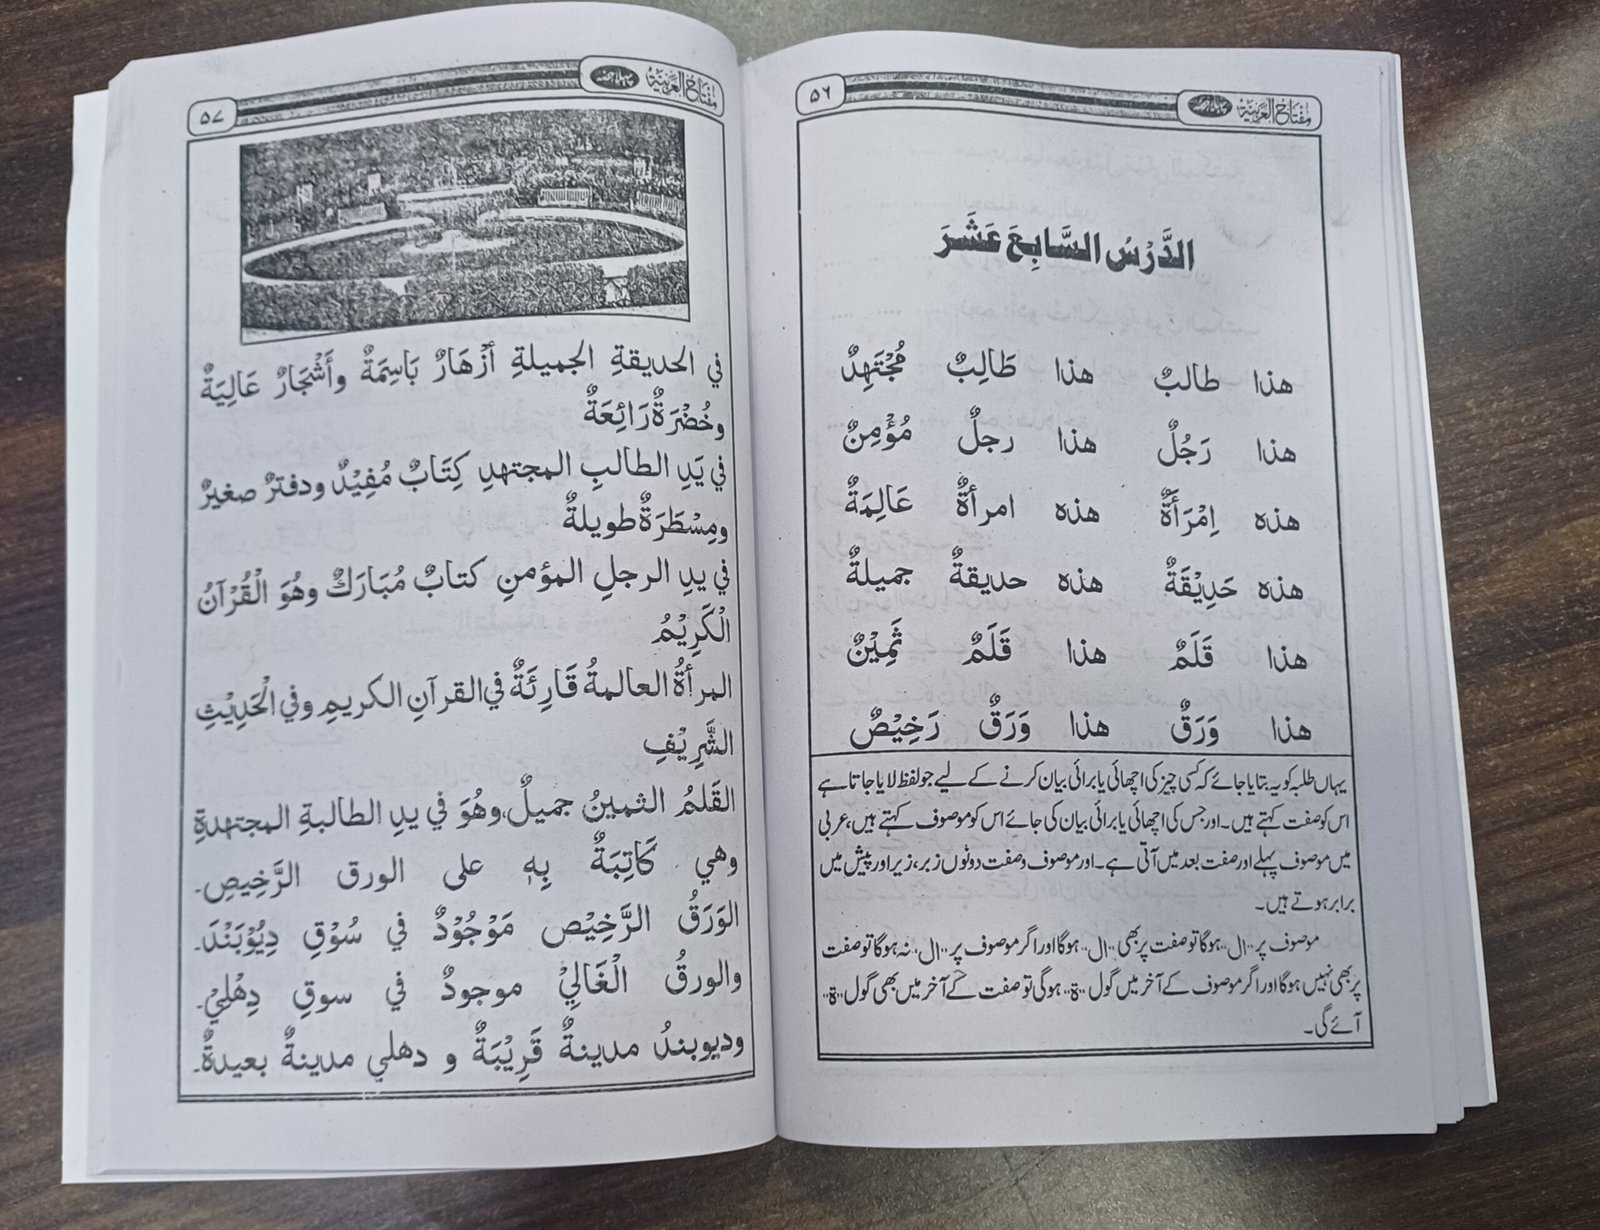 مفتاح العربية
۵۶
الدَّرْسُ السَّابِعَ عَشَرَ
هذا طالبٌ هذا طَالِبٌ مُجْتَهِدٌ
هذا رَجُلٌ هذا رجلٌ مُؤْمِنٌ
هذه اِمْرَأَةٌ هذه امرأةٌ عَالِمَةٌ
هذه حَدِيْقَةٌ هذه حديقةٌ جميلةٌ
هذا قَلَمٌ هذا قَلَمٌ ثَمِيْنٌ
هذا وَرَقٌ هذا وَرَقٌ رَخِيْصٌ
یہاں طلبہ کو یہ بتایا جائے کہ کسی چیز کی اچھائی یا برائی بیان کرنے کے لیے جو لفظ لایا جاتا ہے
اس کو صفت کہتے ہیں۔ اور جس کی اچھائی یا برائی بیان کی جائے اس کو موصوف کہتے ہیں، عربی
میں موصوف پہلے اور صفت بعد میں آتی ہے۔ اور موصوف و صفت دونوں زبر، زیر اور پیش میں
برابر ہوتے ہیں۔
موصوف پر ”ال“ ہوگا تو صفت پر بھی ”ال“ ہوگا اور اگر موصوف پر ”ال“ نہ ہوگا تو صفت
پر بھی نہیں ہوگا اور اگر موصوف کے آخر میں گول ”ۃ“ ہوگی تو صفت کے آخر میں بھی گول ”ۃ“
آئے گی۔
مفتاح العربية پہلا حصہ
۵۷
في الحديقةِ الجميلةِ أزْهَارٌ بَاسِمَةٌ وأَشْجَارٌ عَالِيَةٌ
وخُضْرَةٌ رَائِعَةٌ
في يَدِ الطالبِ المجتهدِ كِتَابٌ مُفِيْدٌ ودفترٌ صغيرٌ
ومِسْطَرَةٌ طويلةٌ
في يدِ الرجلِ المؤمنِ كتابٌ مُبَارَكٌ وهُوَ الْقُرْآنُ
الْكَرِيْمُ
المرأةُ العالمةُ قَارِئَةٌ في القرآنِ الكريمِ وفي الْحَدِيْثِ
الشَّرِيْفِ
القَلمُ الثمينُ جميلٌ، وهُوَ في يدِ الطالبةِ المجتهدةِ
وهي كَاتِبَةٌ بِهٖ على الورق الرَّخِيصِ۔
الوَرَقُ الرَّخِيْص مَوْجُوْدٌ في سُوْقِ دِيُوْبَنْدَ۔
والورقُ الْغَالِيْ موجودٌ في سوقِ دِهْلِيْ۔
وديوبندُ مدينةٌ قَرِيْبَةٌ و دهلي مدينةٌ بعيدةٌ۔